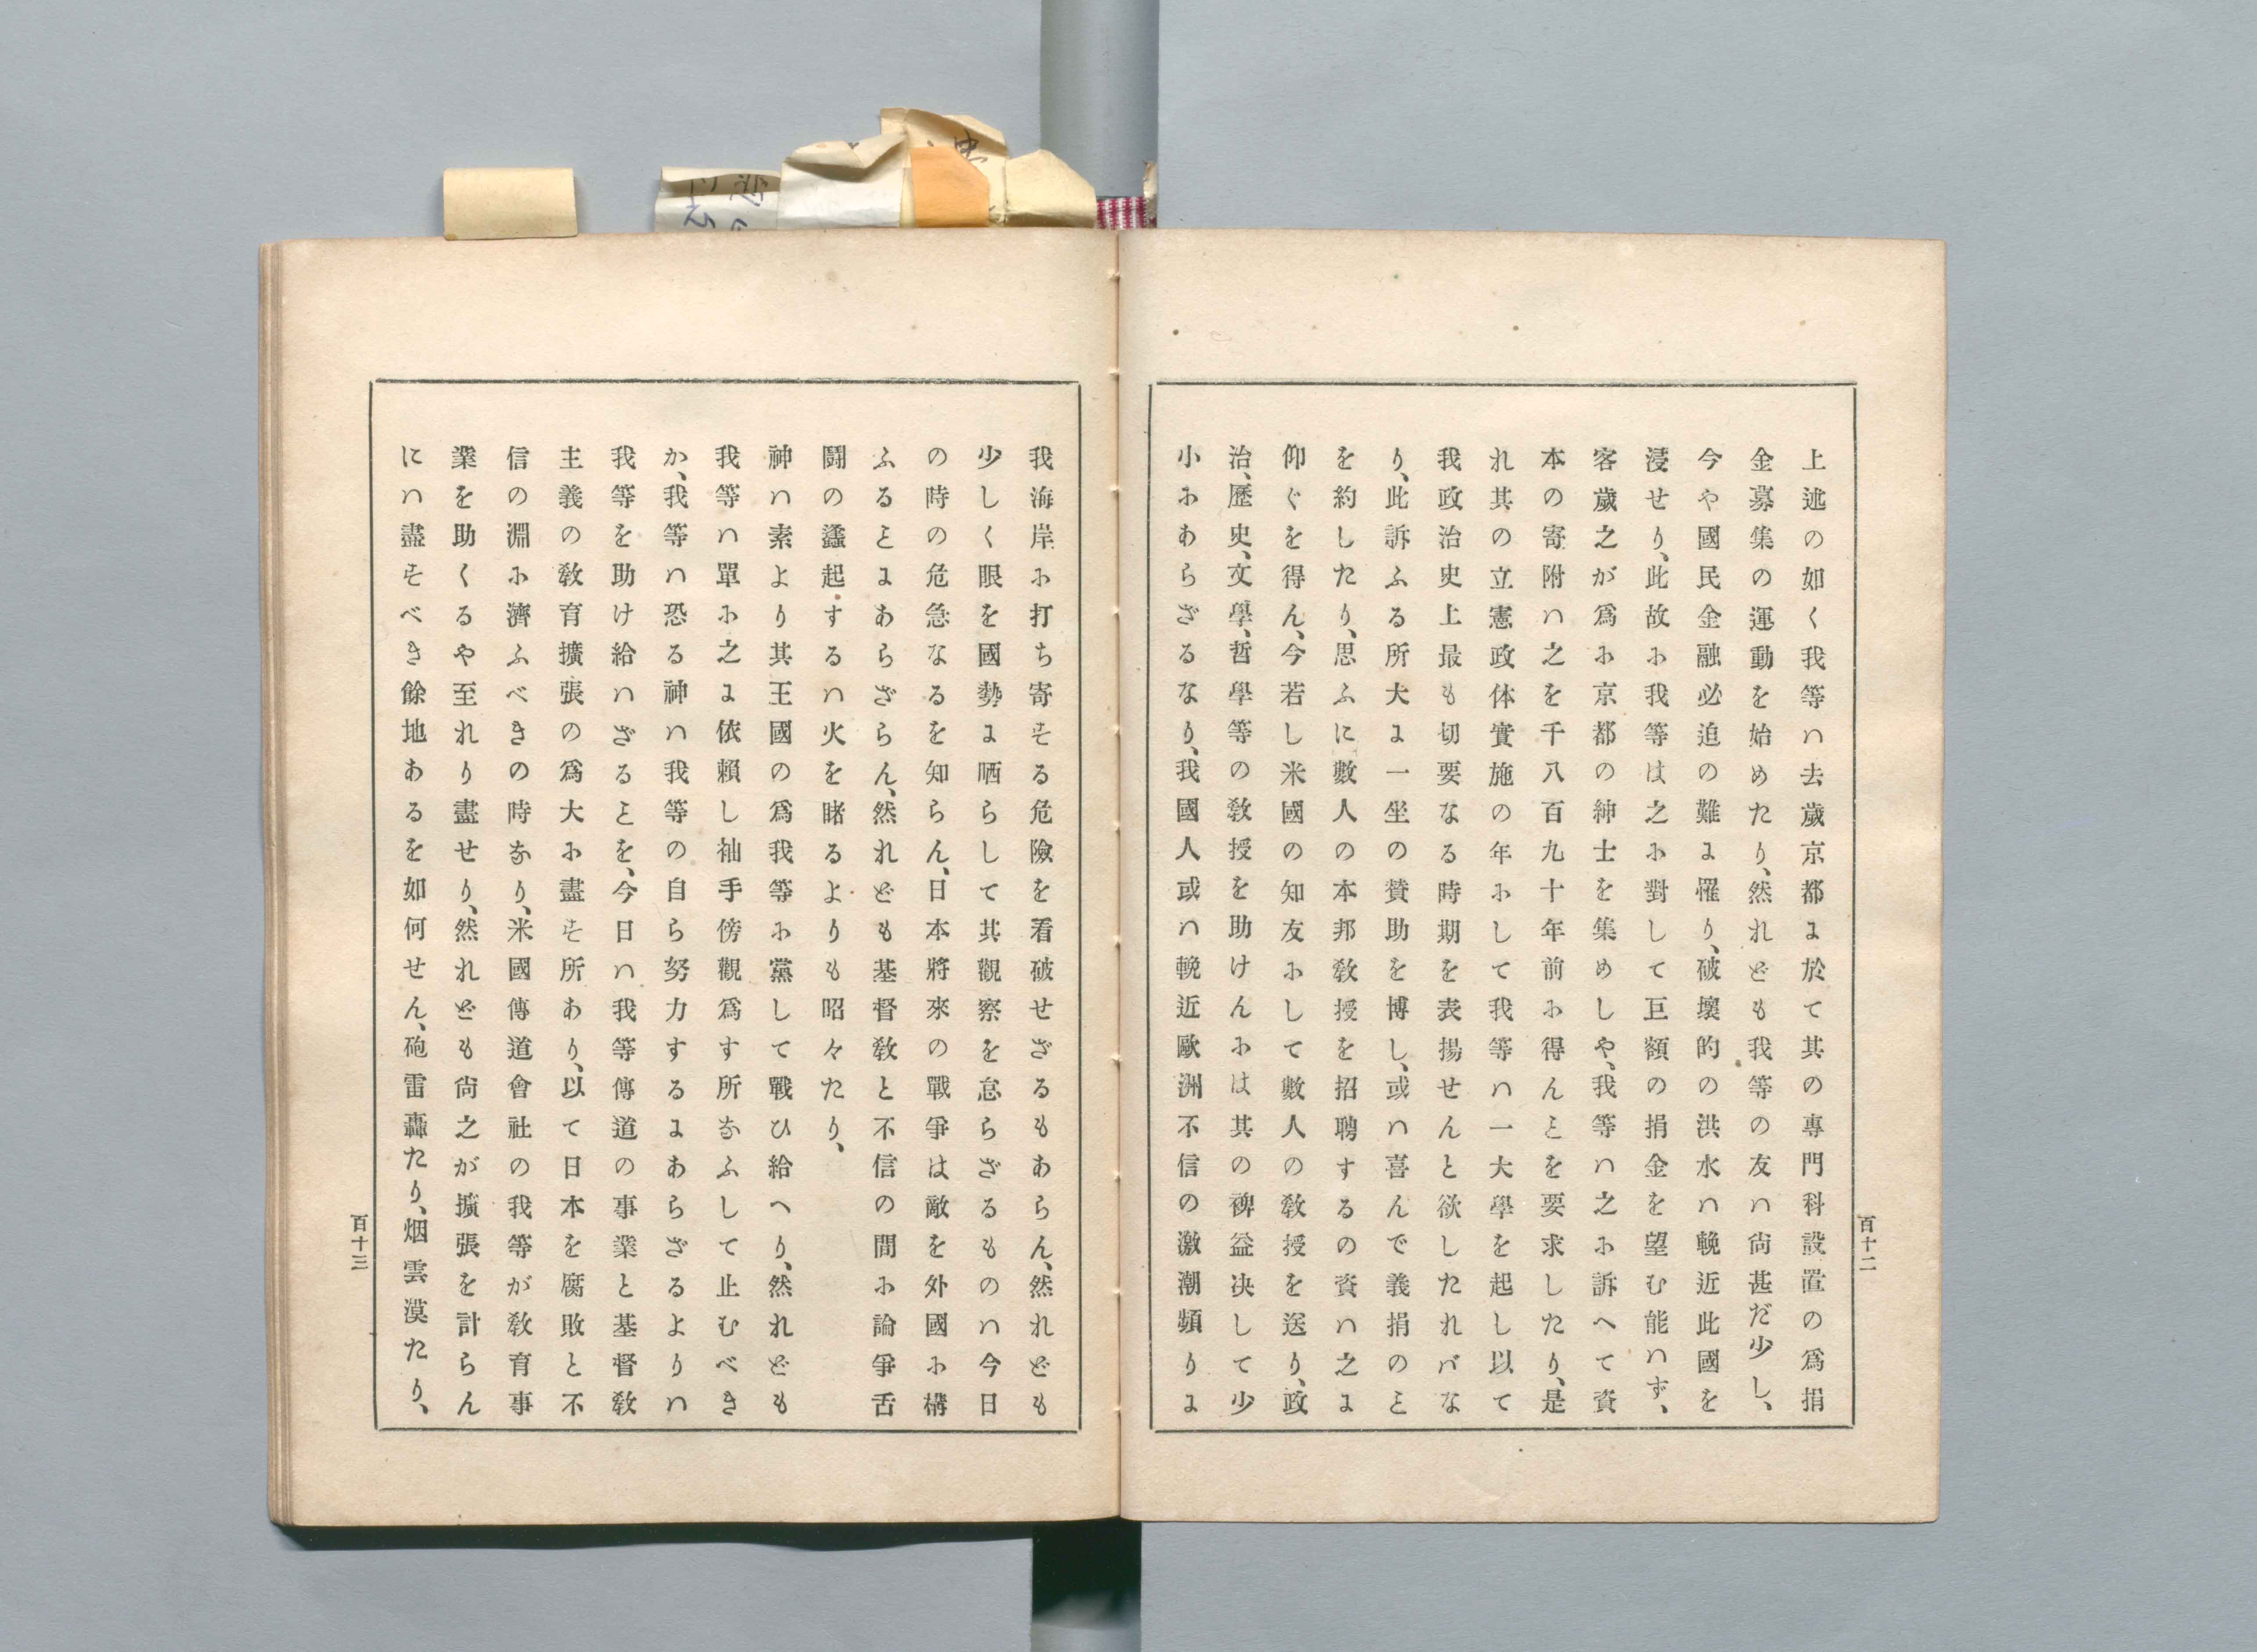 上述の如く我等ハ去歲京都に於て其の專門科設置の爲捐
金募集の運動を始めたり、然れども我等の友ハ尙甚だ少し、
今や國民金融必迫の難に罹り、破壞的の洪水ハ輓近此國を
浸せり、此故に我等は之に對して巨額の捐金を望む能ハず、
客歲之が爲に京都の紳士を集めしや、我等ハ之に訴へて資
本の寄附ハ之を千八百九十年前に得んことを要求したり、是
れ其の立憲政体實施の年にして我等ハ一大學を起し以て
我政治史上最も切要なる時期を表揚せんと欲したれバな
り、此訴ふる所大に一坐の賛助を博し、或ハ喜んで義捐のこと
を約したり、思ふに數人の本邦敎授を招聘するの資ハ之に
仰ぐを得ん、今若し米國の知友にして數人の敎授を送り、政
治、歷史、文學、哲學等の敎授を助けんには其の裨益决して少
小にあらざるなり、我國人或ハ輓近歐洲不信の激潮頻りに
百十二
我海岸に打ち寄する危險を看破せざるもあらん、然れども
少しく眼を國勢に晒らして其觀察を怠らざるものハ今日
の時の危急なるを知らん、日本將來の戰爭は敵を外國に構
ふることにあらざらん、然れども基督敎と不信の間に論爭舌
鬪の蠭起するハ火を睹るよりも昭々たり、
神ハ素より其王國の爲我等に黨して戰ひ給へり、然れども
我等ハ單に之に依賴し袖手傍觀爲す所なふして止むべき
か、我等ハ恐る神ハ我等の自ら努力するにあらざるよりハ
我等を助け給ハざることを、今日ハ我等傳道の事業と基督敎
主義の敎育擴張の爲大に盡す所あり、以て日本を腐敗と不
信の淵に濟ふべきの時なり、米國傳道會社の我等が敎育事
業を助くるや至れり盡せり、然れども尙之が擴張を計らん
にハ盡すべき餘地あるを如何せん、砲雷轟たり、烟雲漠たり、
百十三